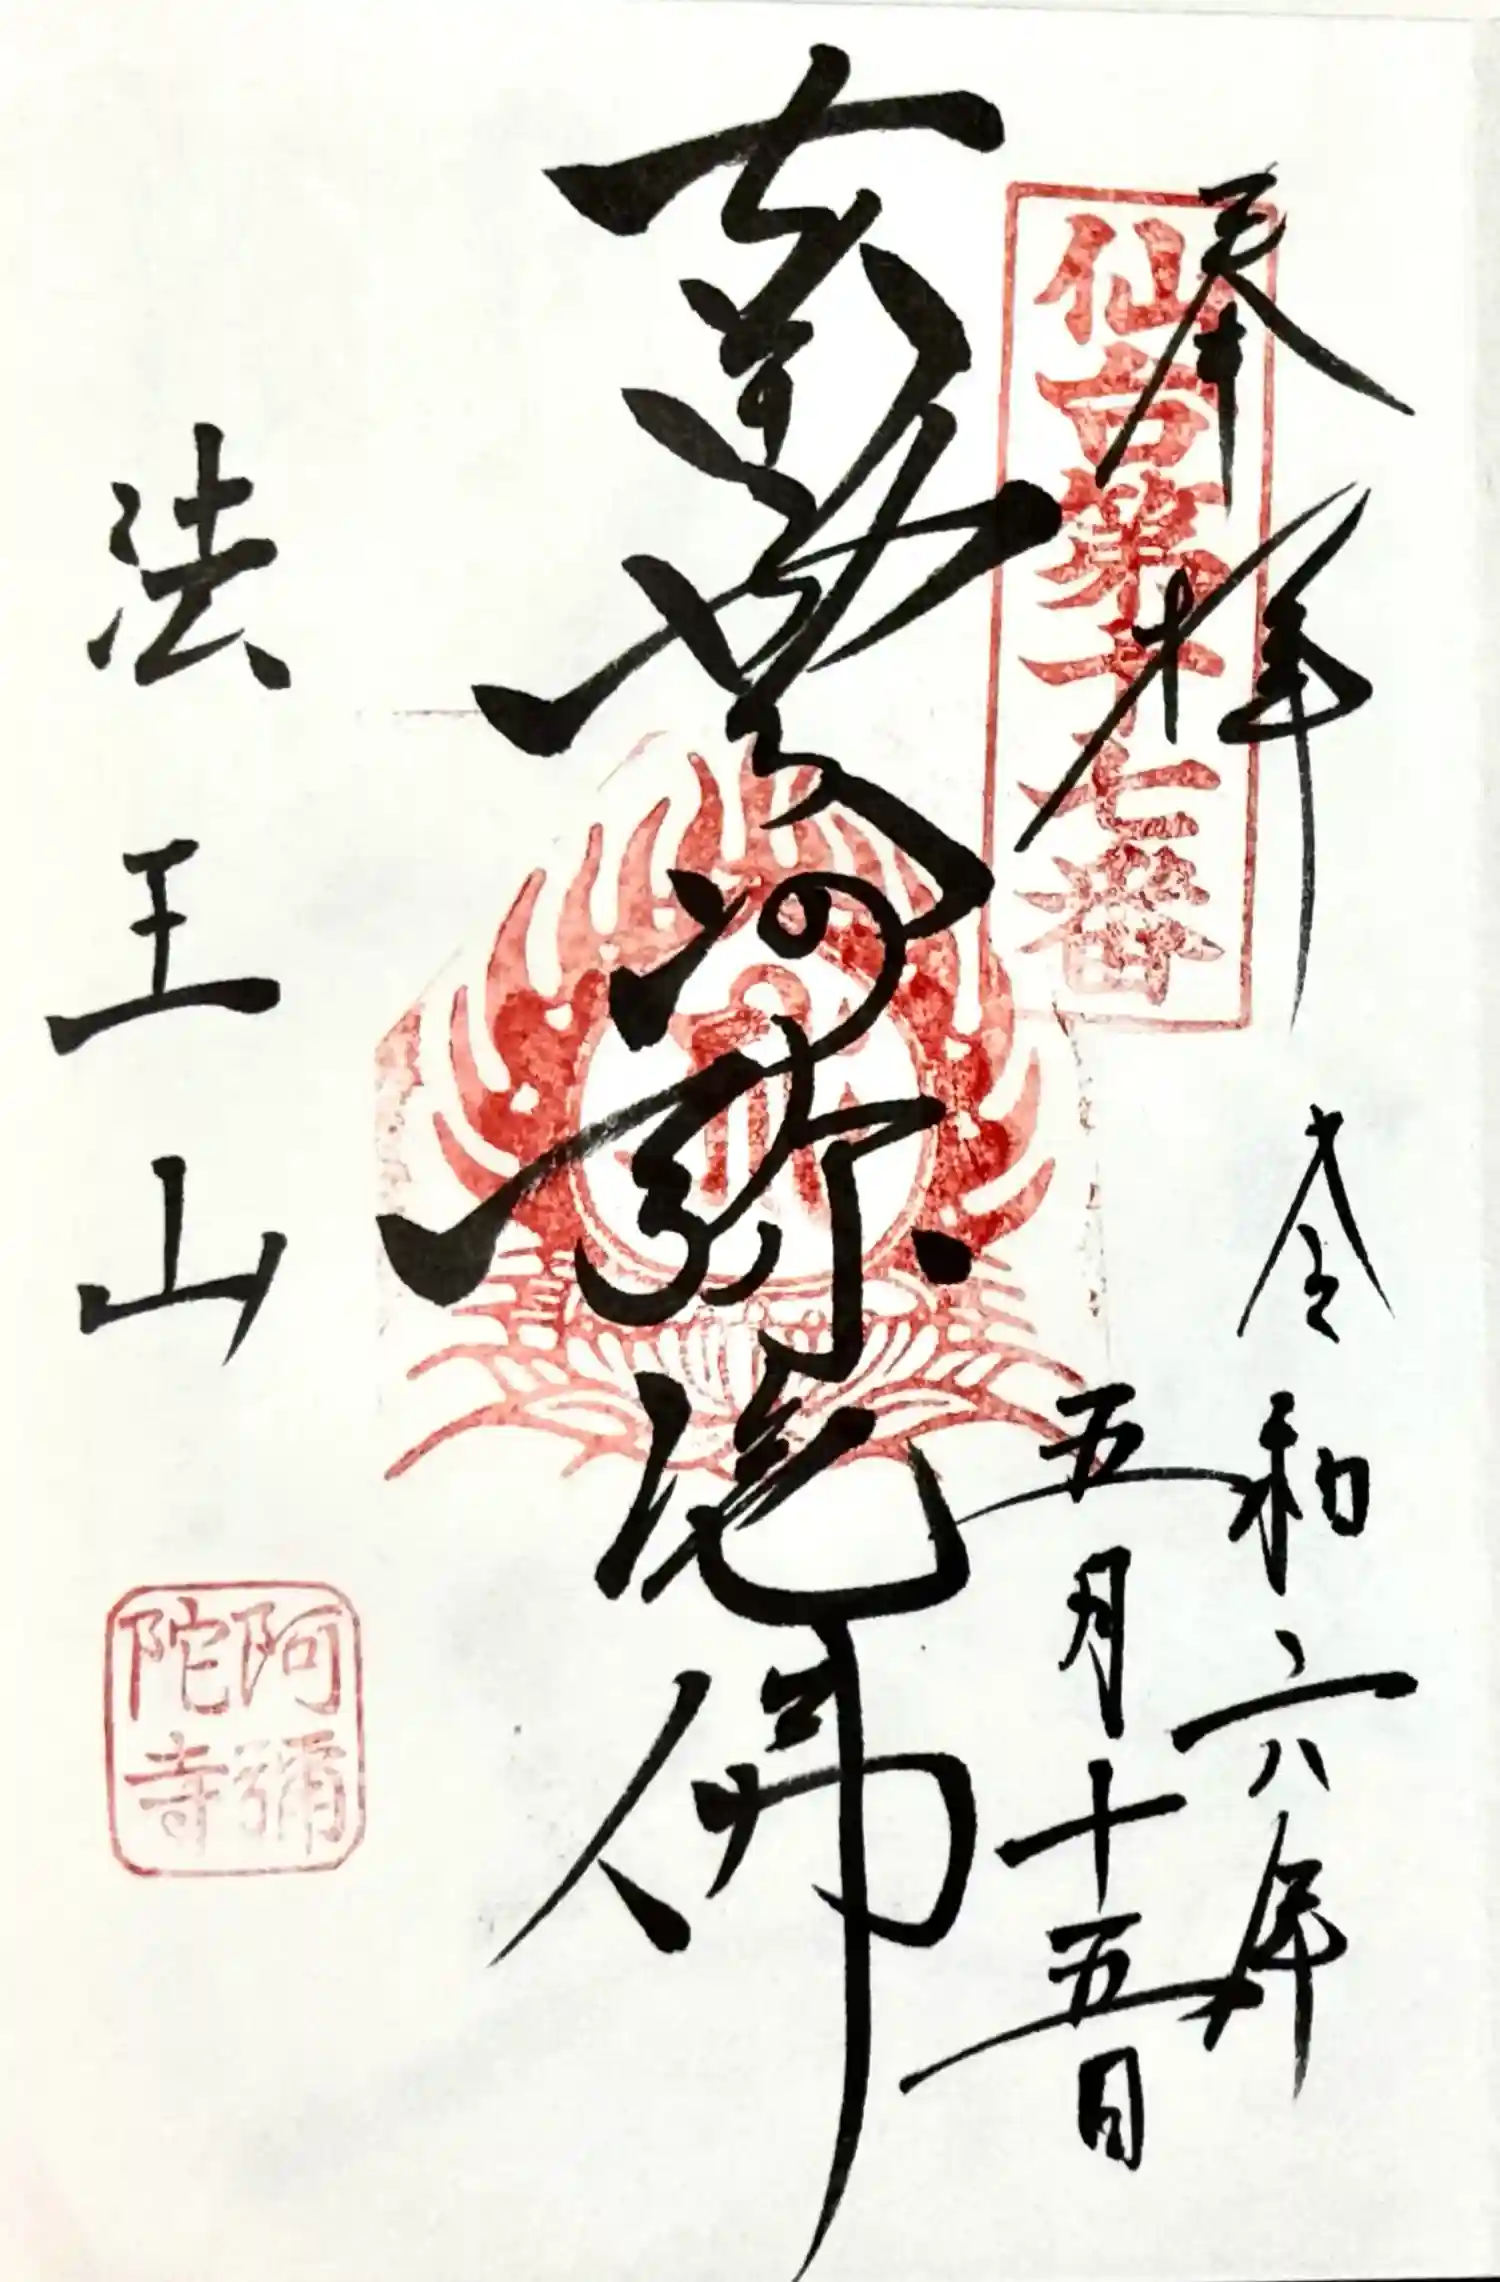 奉拝
仙台第十七番
令和六年
五月十五日
南無阿弥陀佛
法王山
阿彌陀寺